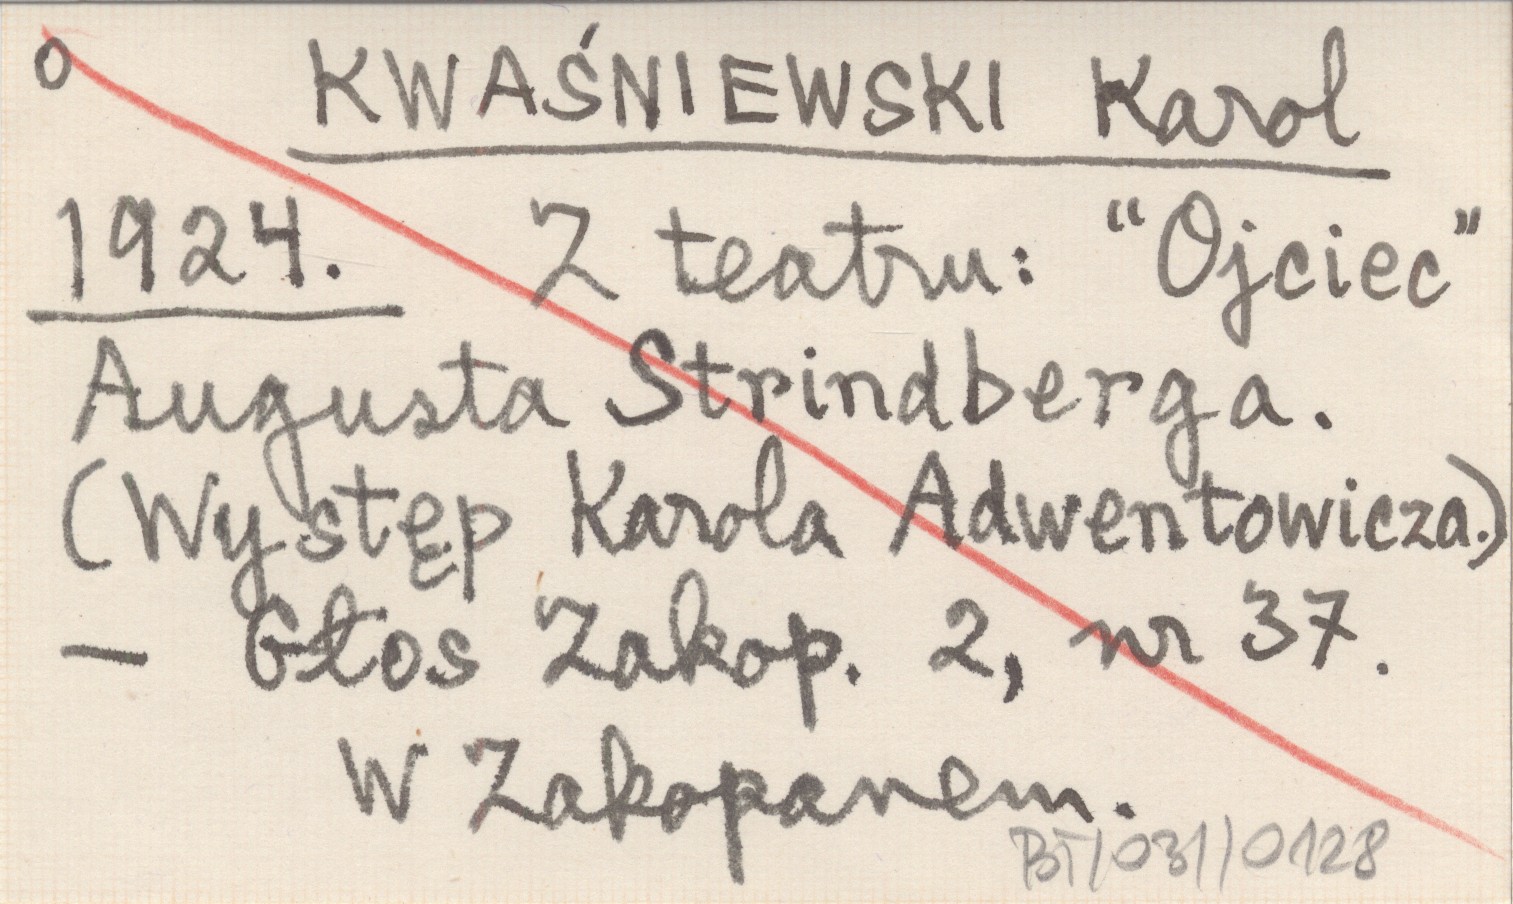 o KWAŚNIEWSKI Karol
1924. Z teatru: "Ojciec"
Augusta Strindberga.
(Występ Karola Adwentowicza.)
— Głos Zakop. 2, nr 37.
W Zakopanem.
BT/031/0128